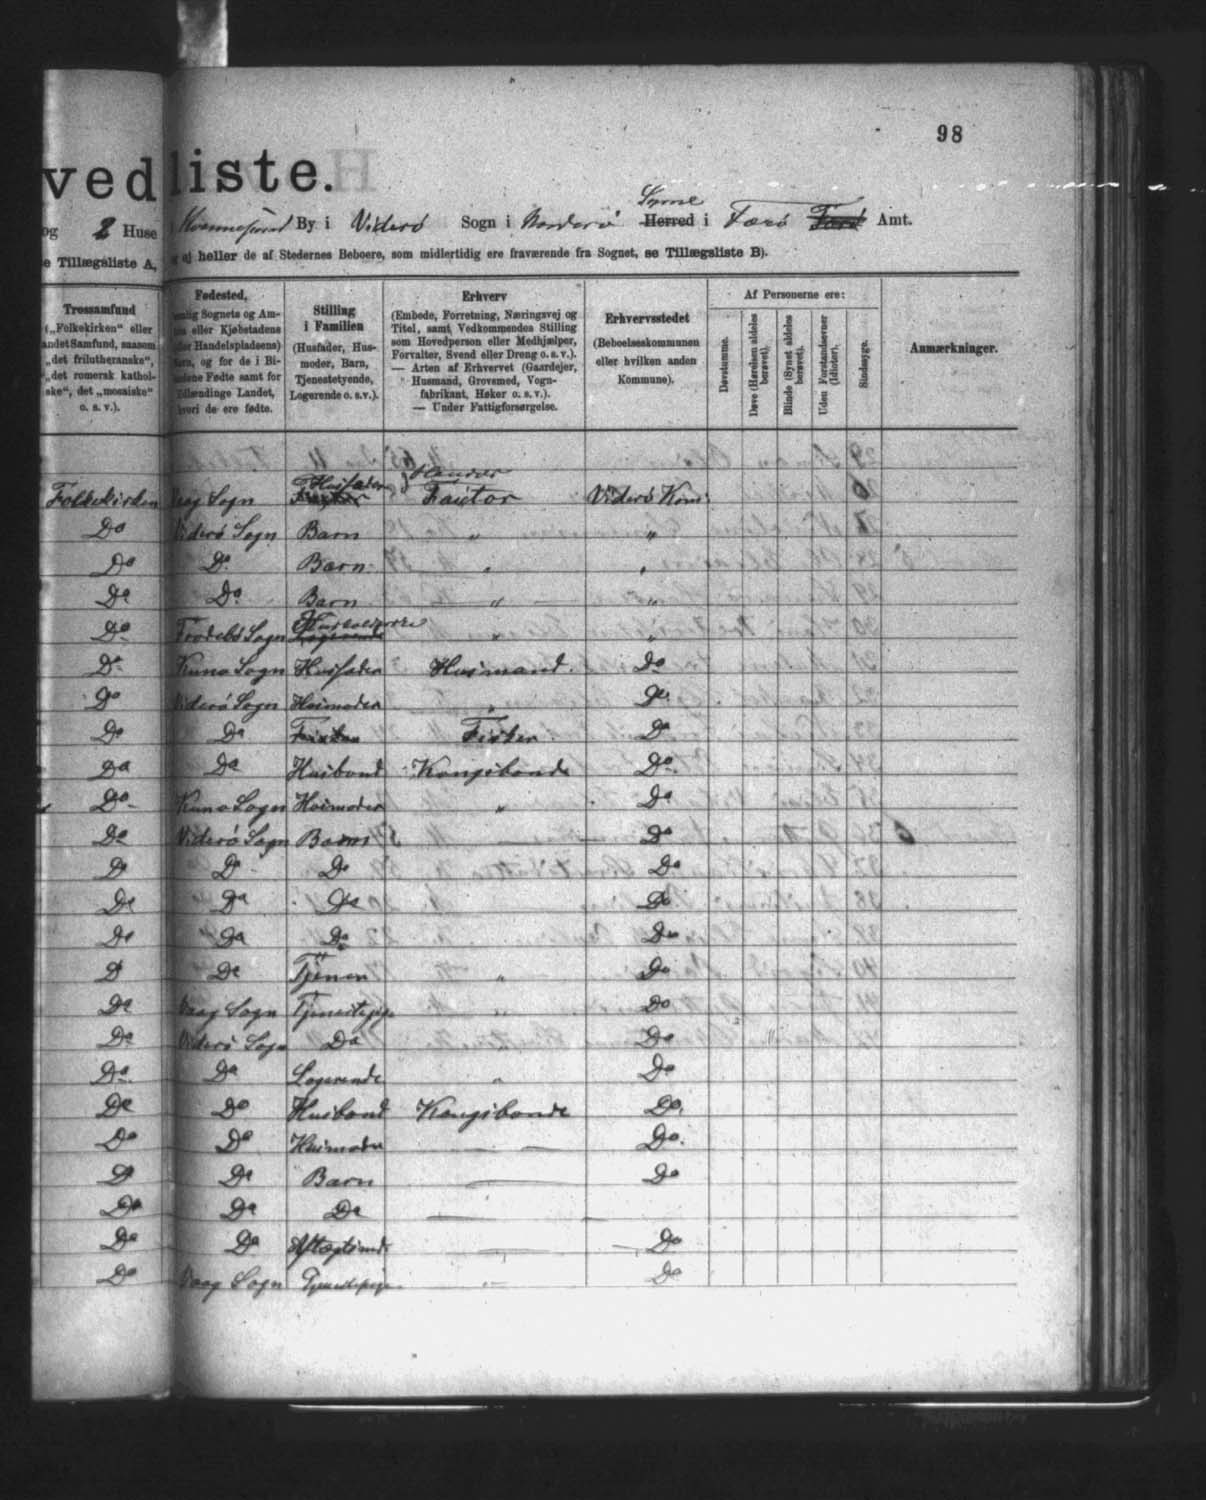 98
ved liste.
og 2 Huse Kvannesund By i Viderö Sogn i Norderö Herred Syssel i Færö Amt.
e Tillægsliste A, og ej heller de af Stedernes Beboere, som midlertidig ere fraværende fra Sognet, se Tillægsliste B).
Trossamfund
(„Folkekirken" eller
andet Samfund, saasom
„det frilutheranske",
„det romersk kathol-
ske", det „mosaiske"
o. s. v.).
Fødested,
Sognets og Am-
eller Kjøbstadens
Handelspladsens)
og for de i Bi-
Fødte samt for
Landet,
hvori de ere fødte.
Stilling
i Familien
(Husfader, Hus-
moder, Barn,
Tjenestetyende,
Logerende o. s. v.).
Erhverv
(Embede, Forretning, Næringsvej og
Titel, samt Vedkommendes Stilling
som Hovedperson eller Medhjælper,
Forvalter, Svend eller Dreng o. s. v.).
— Arten af Erhvervet (Gaardejer,
Husmand, Grovsmed, Vogn-
fabrikant, Høker o. s. v.).
— Under Fattigforsørgelse.
Erhvervsstedet
(Beboelseskommunen
eller hvilken anden
Kommune).
Af Personerne ere:
Døvstumme.
Døve (Hørelsen aldeles
berøvet).
Blinde (Synet aldeles
berøvet).
Uden Forstandsevner
(Idioter).
Sindssyge.
Anmærkninger.
Folkekirken Vaag Sogn Husfader Factor Handels Factor Viderö Kom:
Do Viderö Sogn Barn " "
Do Do Barn " "
Do Do Barn " "
Do Frodebö Sogn Logerende " "
Do Kuno Sogn Husfader Husmand. Do
Do Viderö Sogn Husmoder " Do
Do Do Fisker Do
Do Do Husbond Kongsbonde Do
Do Kuno Sogn Husmoder " Do
Do Viderö Sogn Barn Do
Do Do Do Do
Do Do Do Do
Do Do Do Do
Do Do Tjener " Do
Do Vaag Sogn Tjenestepige " Do
Do Viderö Sogn Do Do
Do Do Logerende " Do
Do Do Husbond Kongsbonde Do.
Do Do Husmoder — Do.
Do Do Barn — Do
Do Do Do — —
Do Do — Do
Do Vaag Sogn Tjenestepige — Do